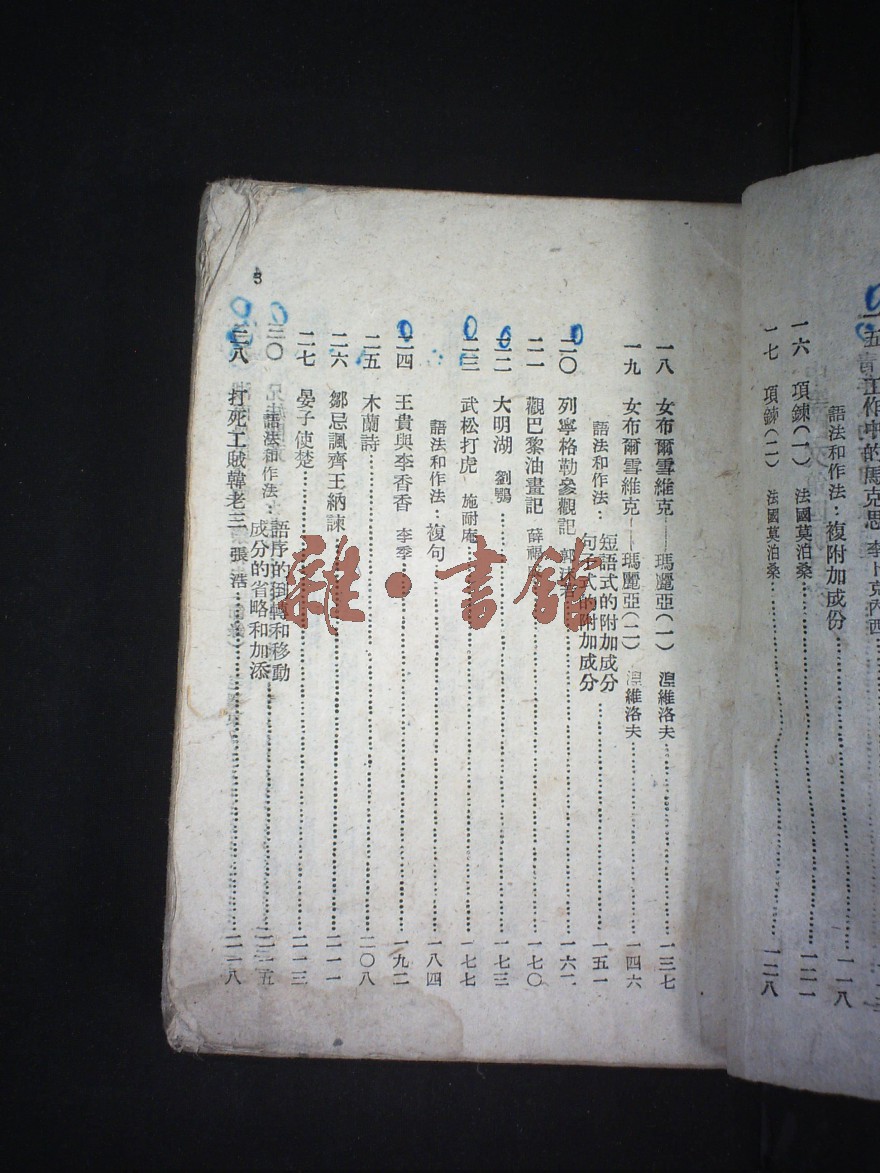 一六　項鍊(一)　法國莫泊桑……一二一
一七　項鍊(二)　法國莫泊桑……一二八
語法和作法：複附加成份……一一八
一八　女布爾雪維克——瑪麗亞(一)　湼維洛夫……一三七
一九　女布爾雪維克——瑪麗亞(二)　湼維洛夫……一四六
語法和作法：短語式的附加成分
句子式的附加成分……一五一
二〇　列寧格勒參觀記……一六一
二一　觀巴黎油畫記　薛福……一七〇
二二　大明湖　劉鶚……一七三
二三　武松打虎　施耐庵……一七七
語法和作法：複句……一八四
二四　王貴與李香香　李季……一九二
二五　木蘭詩……二〇八
二六　鄒忌諷齊王納諫……二一一
二七　晏子使楚……二一三
語法和作法：語序的倒轉和移動
成分的省略和加添
二八　打死工賊韓老三　張浩……二一八
三〇
雜·書館